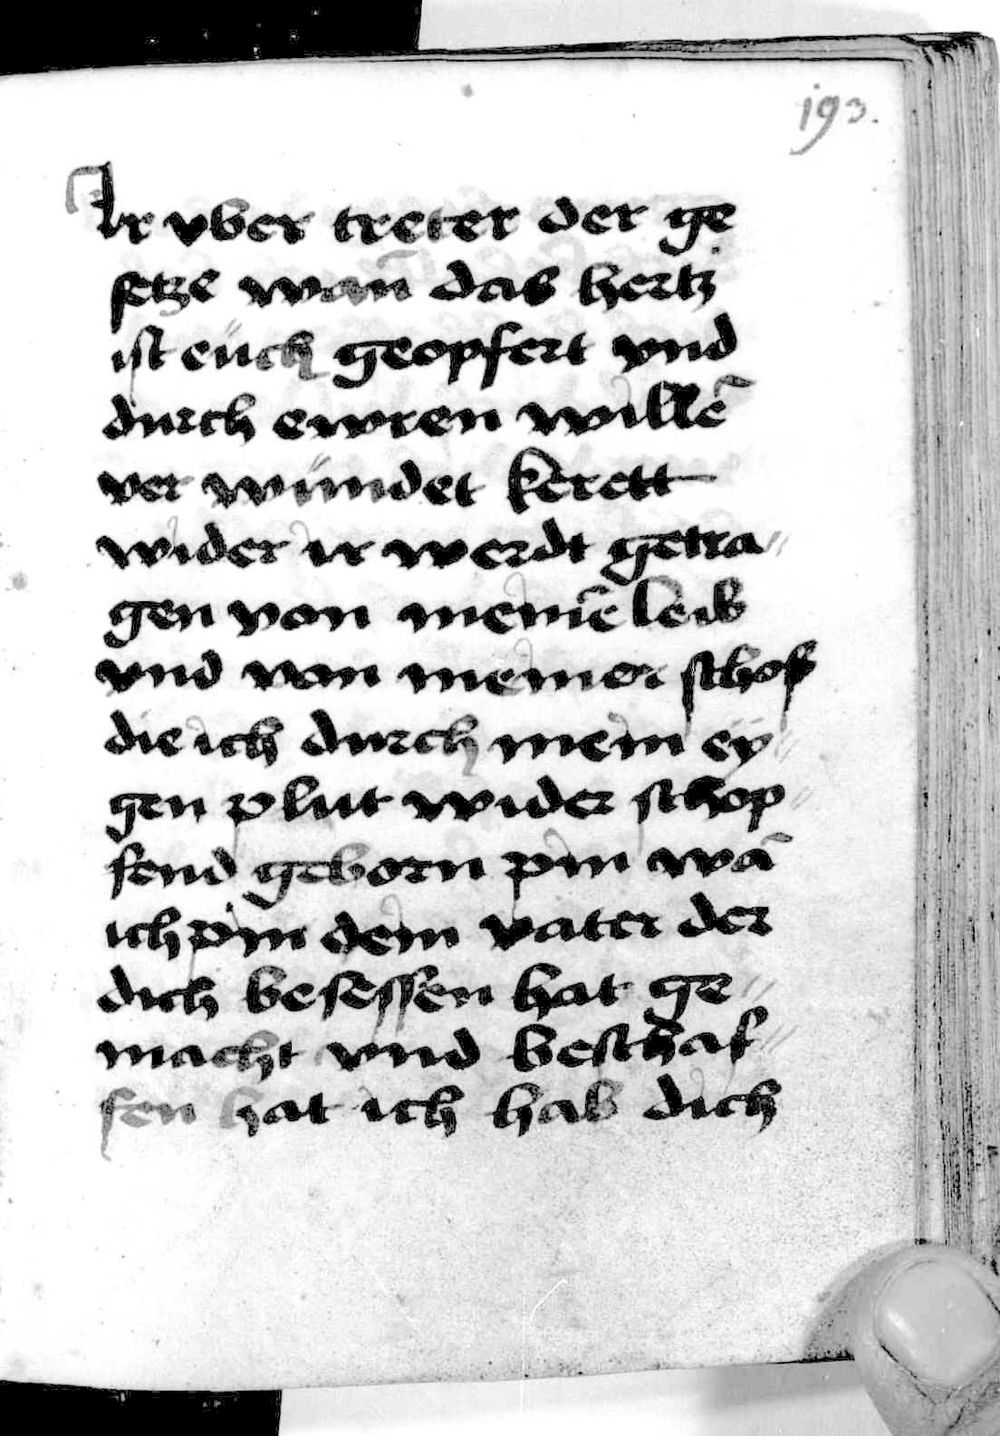 193.
Ir vber treter der ge
setze wan̄ das hertz
ist eüch geopfert vnd
durch ewren willē
ver wündet kerett
wider ir werdt getra〃
gen von meinē leib
vnd von meiner schos
die ich durch mein ey〃
gen plut wider schop〃
fend geborn pin wā
ich pin dem vater der
dich besessen hat ge〃
macht vnd beschaf〃
fen hat ich hab dich